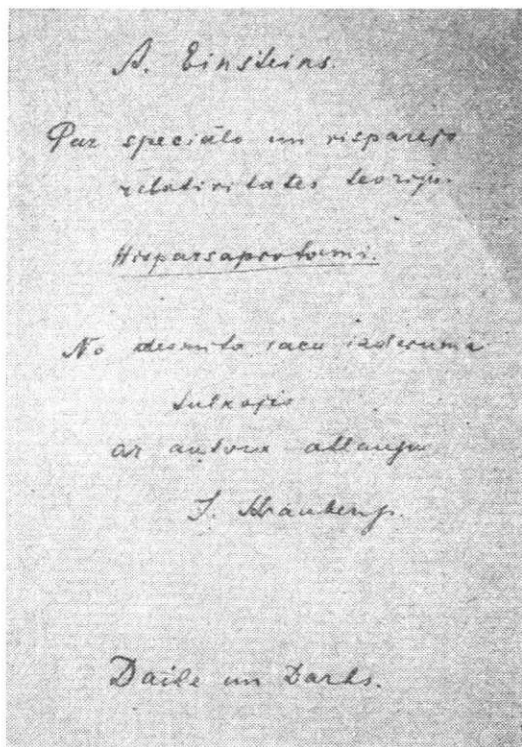 A. Einšteins.
Par speciālo un vispārējo
relativitātes teoriju.
Vispārsaprotami.
No desmitā vācu izdevuma
tulkojis
ar autora atļauju
J. Straubergs.
Daile un Darbs.